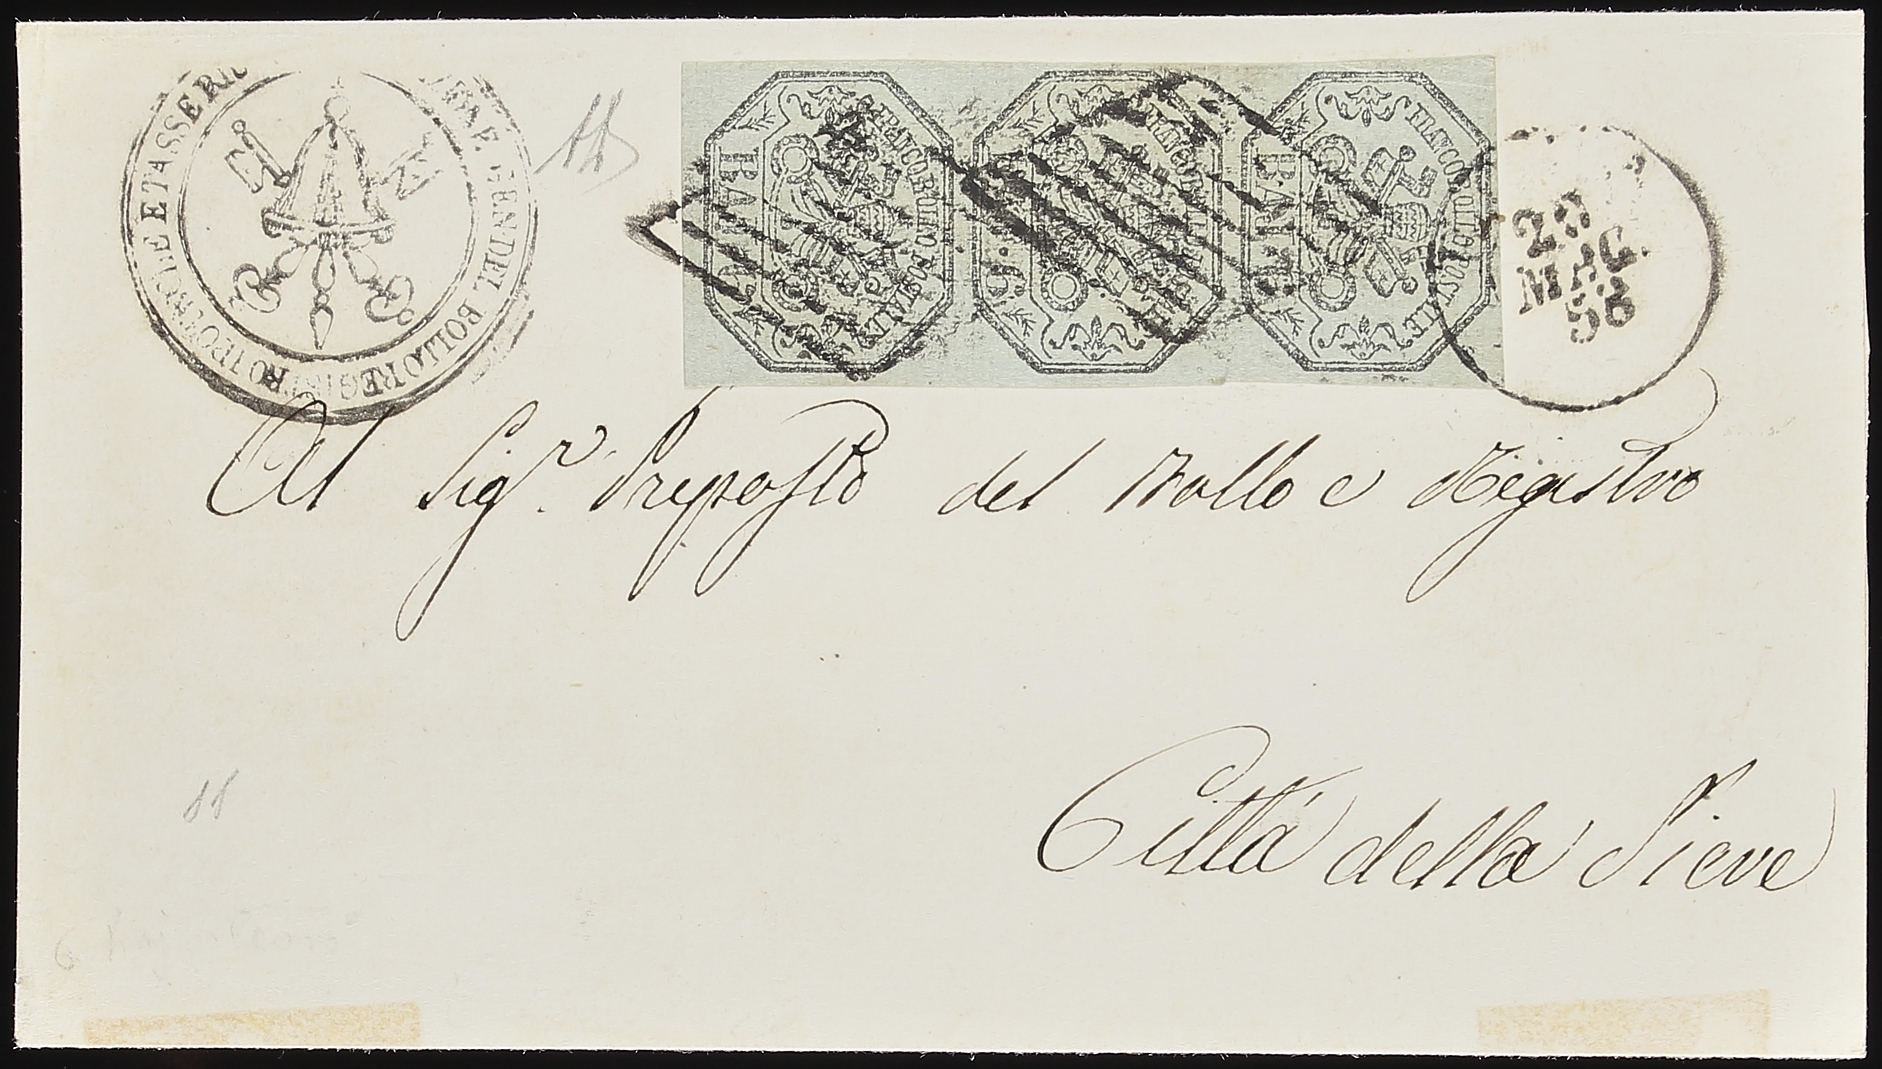 DEL BOLLO REGISTRO IPOTECHE E TASSE RIUNITE
FRANCO BOLLO POSTALE
BAI. 6
FRANCO BOLLO POSTALE
BAI. 6
FRANCO BOLLO POSTALE
BAI. 6
23
MAG.
56
Al Sigr. Preposto del Bollo e Registro
Città della Pieve